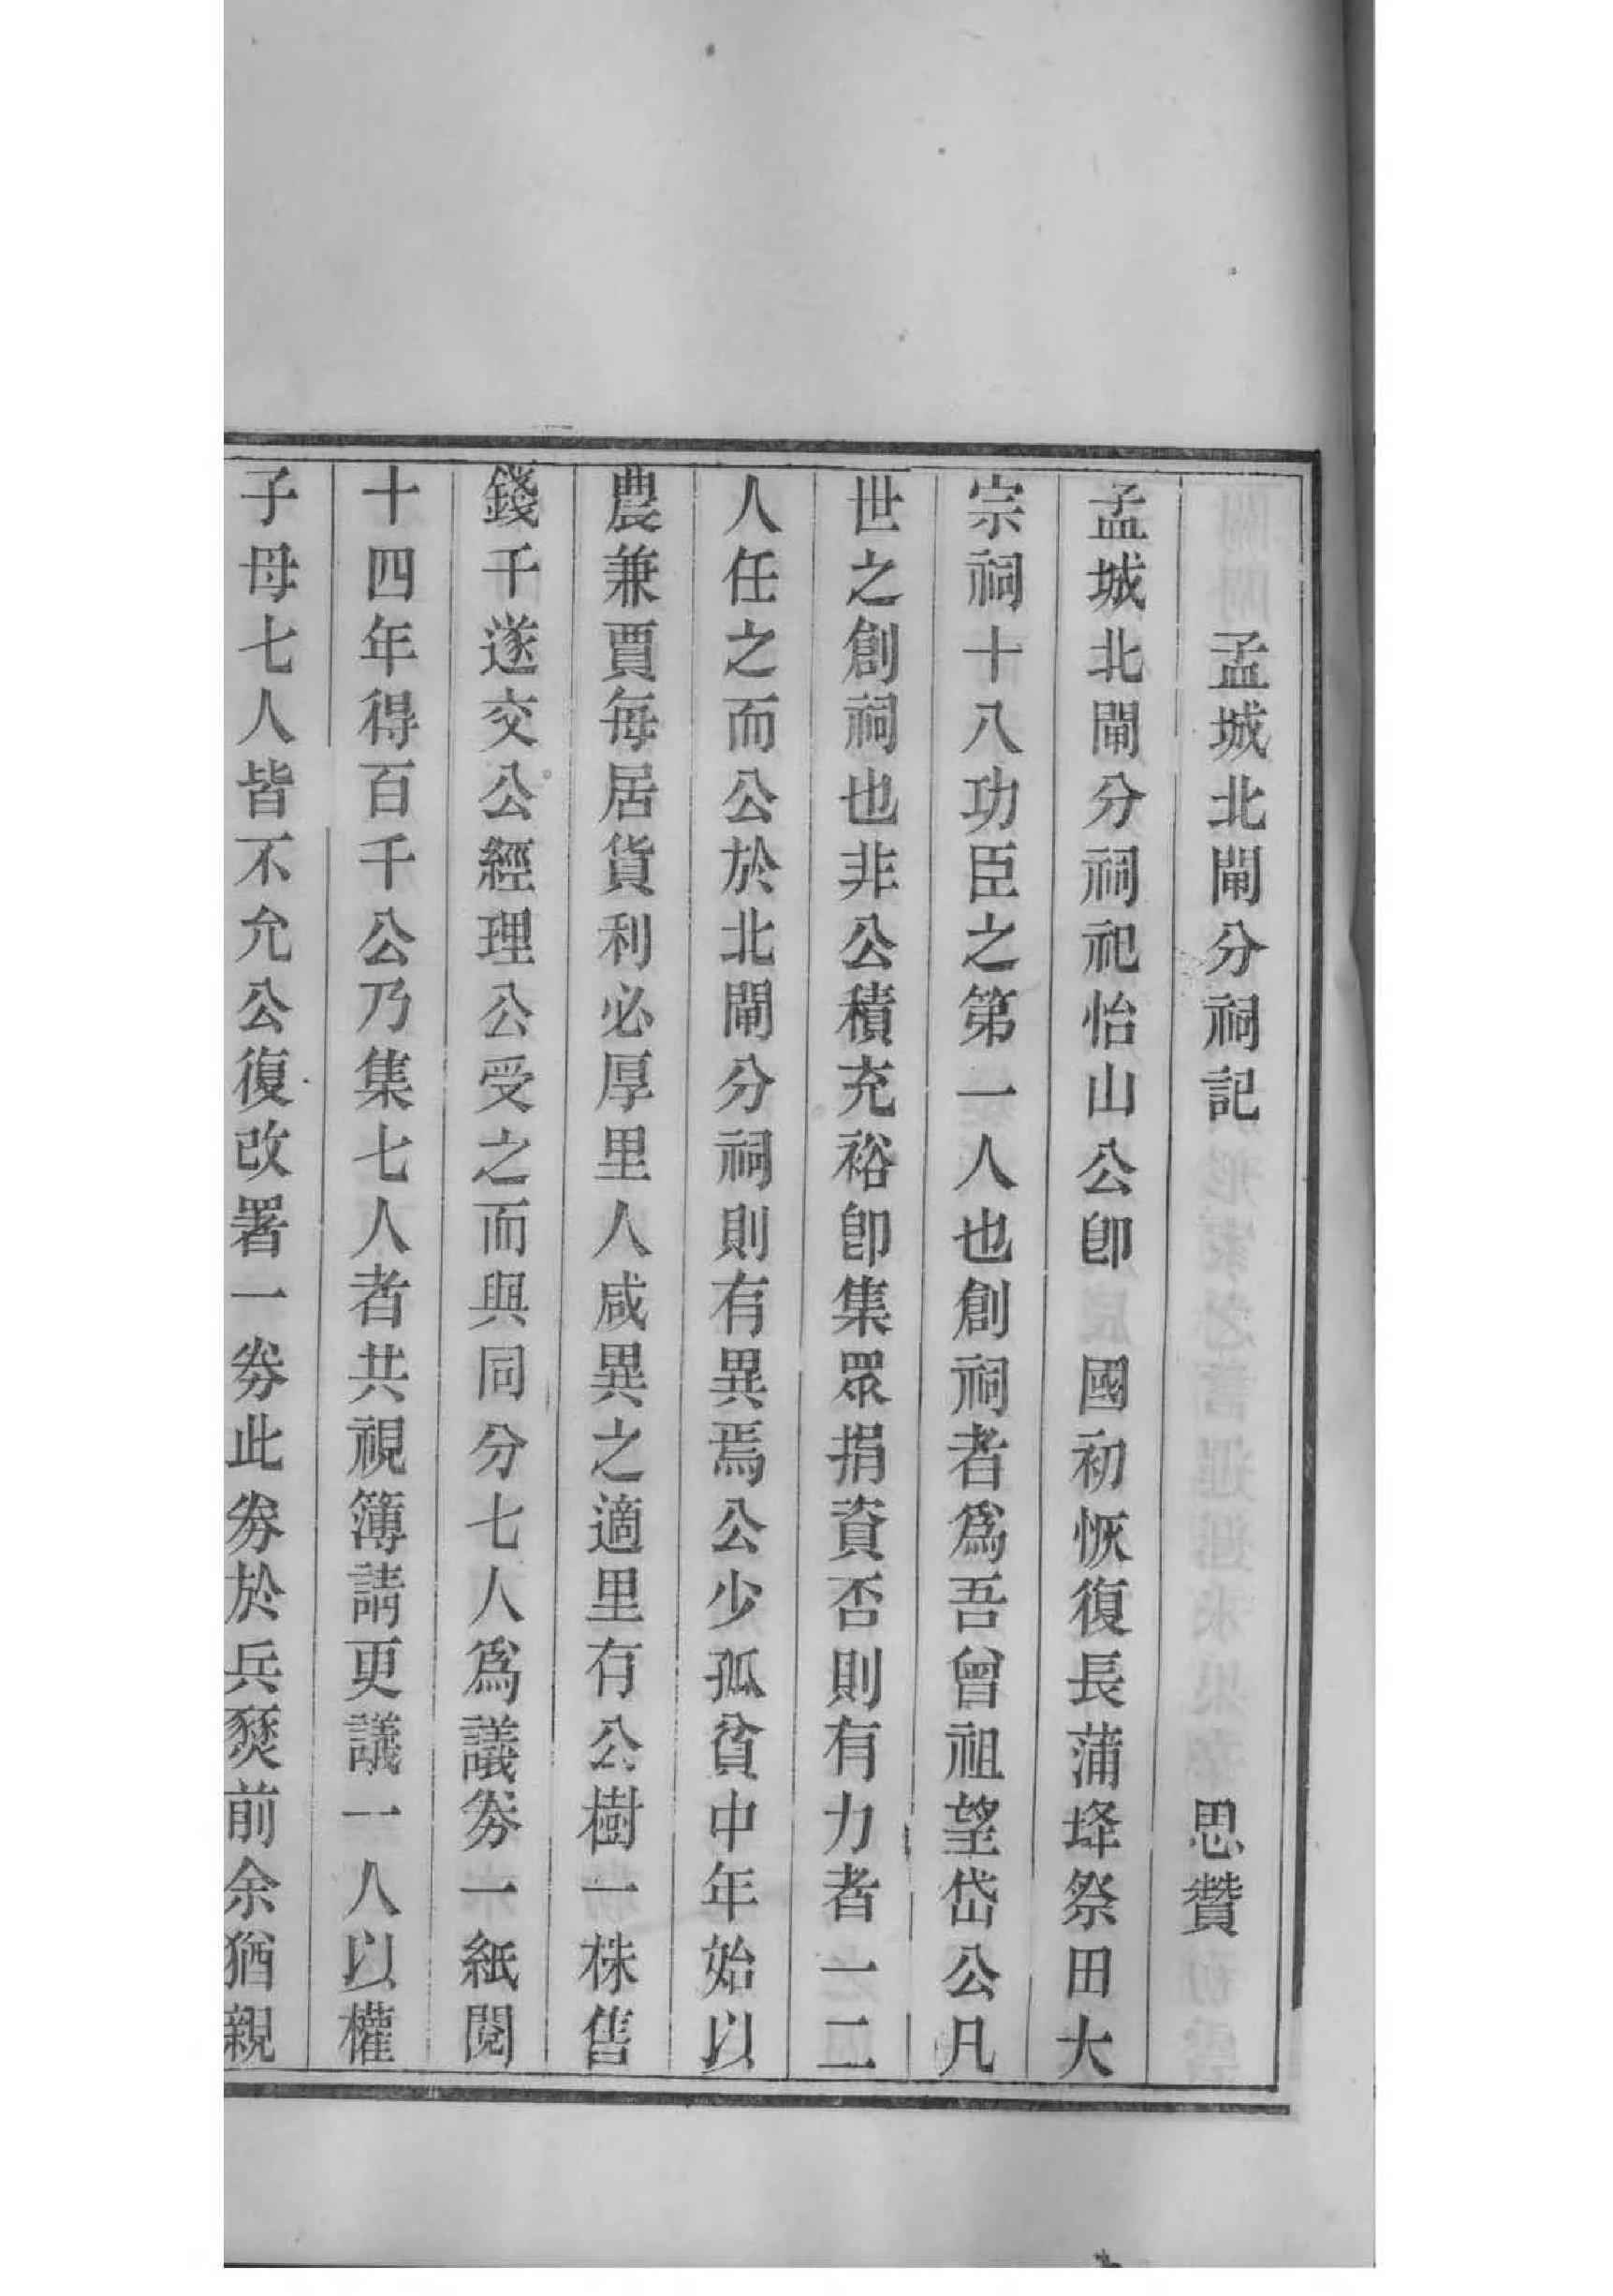 孟城北閘分祠記　思贊
孟城北閘分祠祀怡山公卽　國初恢復長蒲埄祭田大
宗祠十八功臣之第一人也創祠者爲吾曾祖望岱公凡
世之創祠也非公積充裕卽集眾捐資否則有力者一二
人任之而公於北閘分祠則有異焉公少孤貧中年始以
農兼賈每居貨利必厚里人咸異之適里有公樹一株售
錢千遂交公經理公受之而與同分七人爲議劵一紙閱
十四年得百千公乃集七人者共視簿請更議一人以權
子母七人皆不允公復改署一劵此劵於兵燹前余猶親